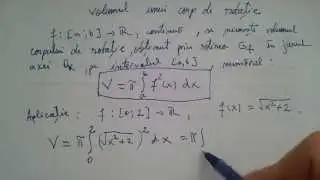 volumul unui corp de rotație
f: [a,b] → ℝ, continuă, se numește volumul
corpului de rotație, obținut prin rotirea Gf în jurul
axei Ox, pe intervalul [a,b], numărul:
V = π ∫_a^b f²(x) dx
Aplicație: f: [0;2] → ℝ, f(x) = √(x²+2).
V = π ∫_0^2 (√(x²+2))² dx = π ∫